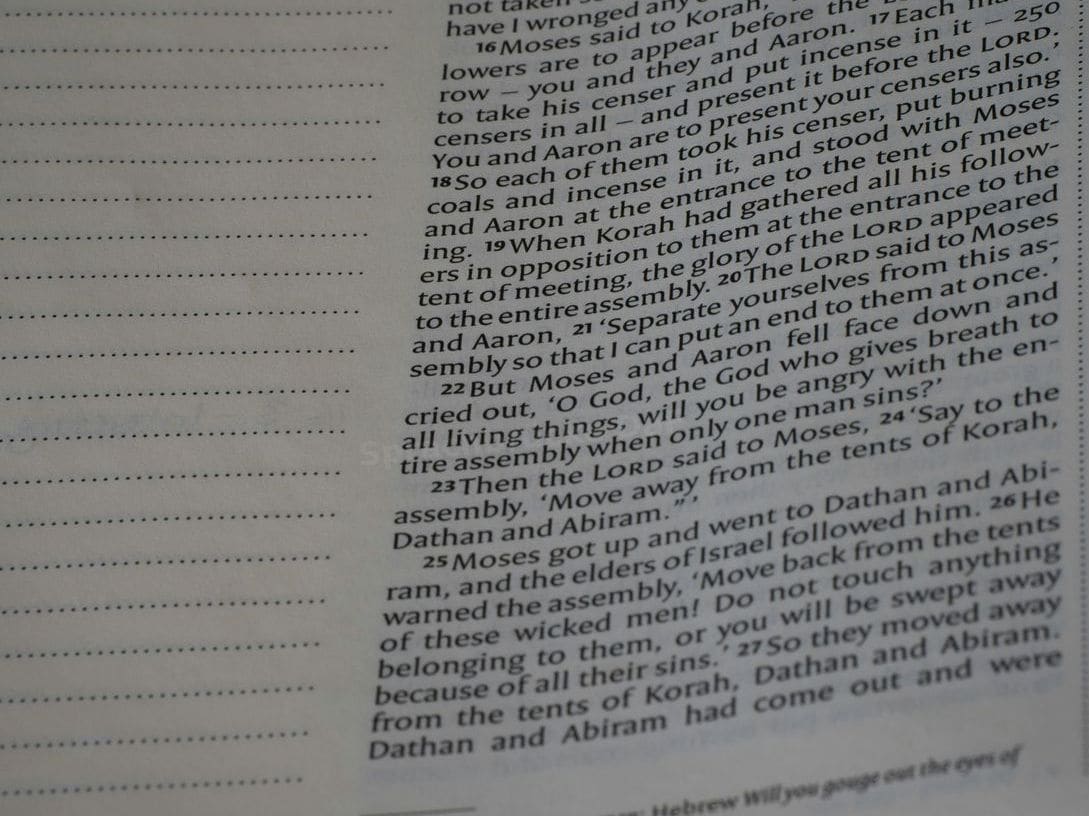 not taken
have I wronged any
16 Moses said to Korah,
lowers are to appear before the
row – you and they and Aaron. 17 Each
to take his censer and put incense in it – 250
censers in all – and present it before the LORD.
You and Aaron are to present your censers also.’
18 So each of them took his censer, put burning
coals and incense in it, and stood with Moses
and Aaron at the entrance to the tent of meet-
ing. 19 When Korah had gathered all his follow-
ers in opposition to them at the entrance to the
tent of meeting, the glory of the LORD appeared
to the entire assembly. 20 The LORD said to Moses
and Aaron, 21 ‘Separate yourselves from this as-
sembly so that I can put an end to them at once.’
22 But Moses and Aaron fell face down and
cried out, ‘O God, the God who gives breath to
all living things, will you be angry with the en-
tire assembly when only one man sins?’
23 Then the LORD said to Moses, 24 ‘Say to the
assembly, ‘Move away from the tents of Korah,
Dathan and Abiram.” ’
25 Moses got up and went to Dathan and Abi-
ram, and the elders of Israel followed him. 26 He
warned the assembly, ‘Move back from the tents
of these wicked men! Do not touch anything
belonging to them, or you will be swept away
because of all their sins.’ 27 So they moved away
from the tents of Korah, Dathan and Abiram.
Dathan and Abiram had come out and were
Hebrew Will you gouge out the eyes of